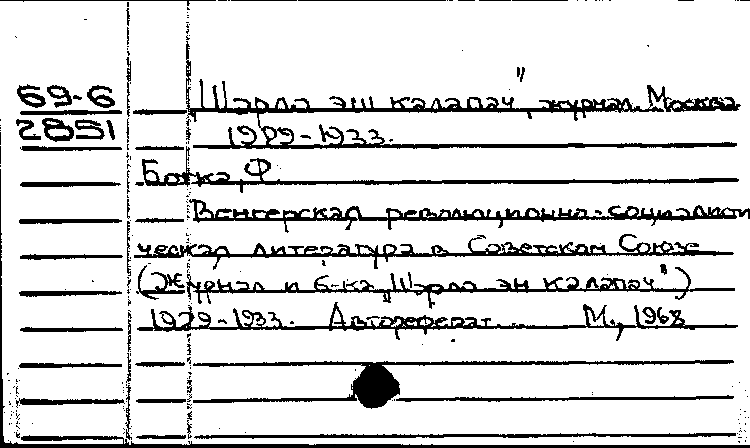 69-6
2851
"Шарло эш калапач", журнал. Москва
1929-1933.
Ботка, Ф.
Венгерская революционно-социалисти
ческая литература в Советском Союзе
(Журнал и б-ка "Шарло эш калапач")
1929-1933. Автореферат. М., 1968